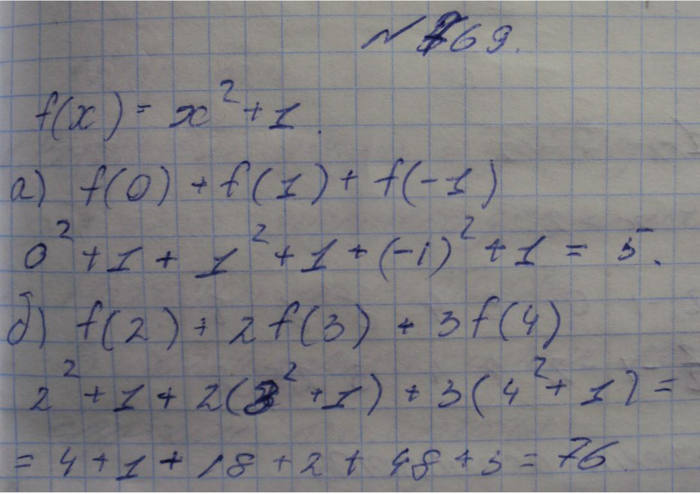 № 769.
f(x) = x² + 1.
а) f(0) + f(1) + f(-1)
0² + 1 + 1² + 1 + (-1)² + 1 = 5.
б) f(2) + 2f(3) + 3f(4)
2² + 1 + 2(3² + 1) + 3(4² + 1) =
= 4 + 1 + 18 + 2 + 48 + 3 = 76